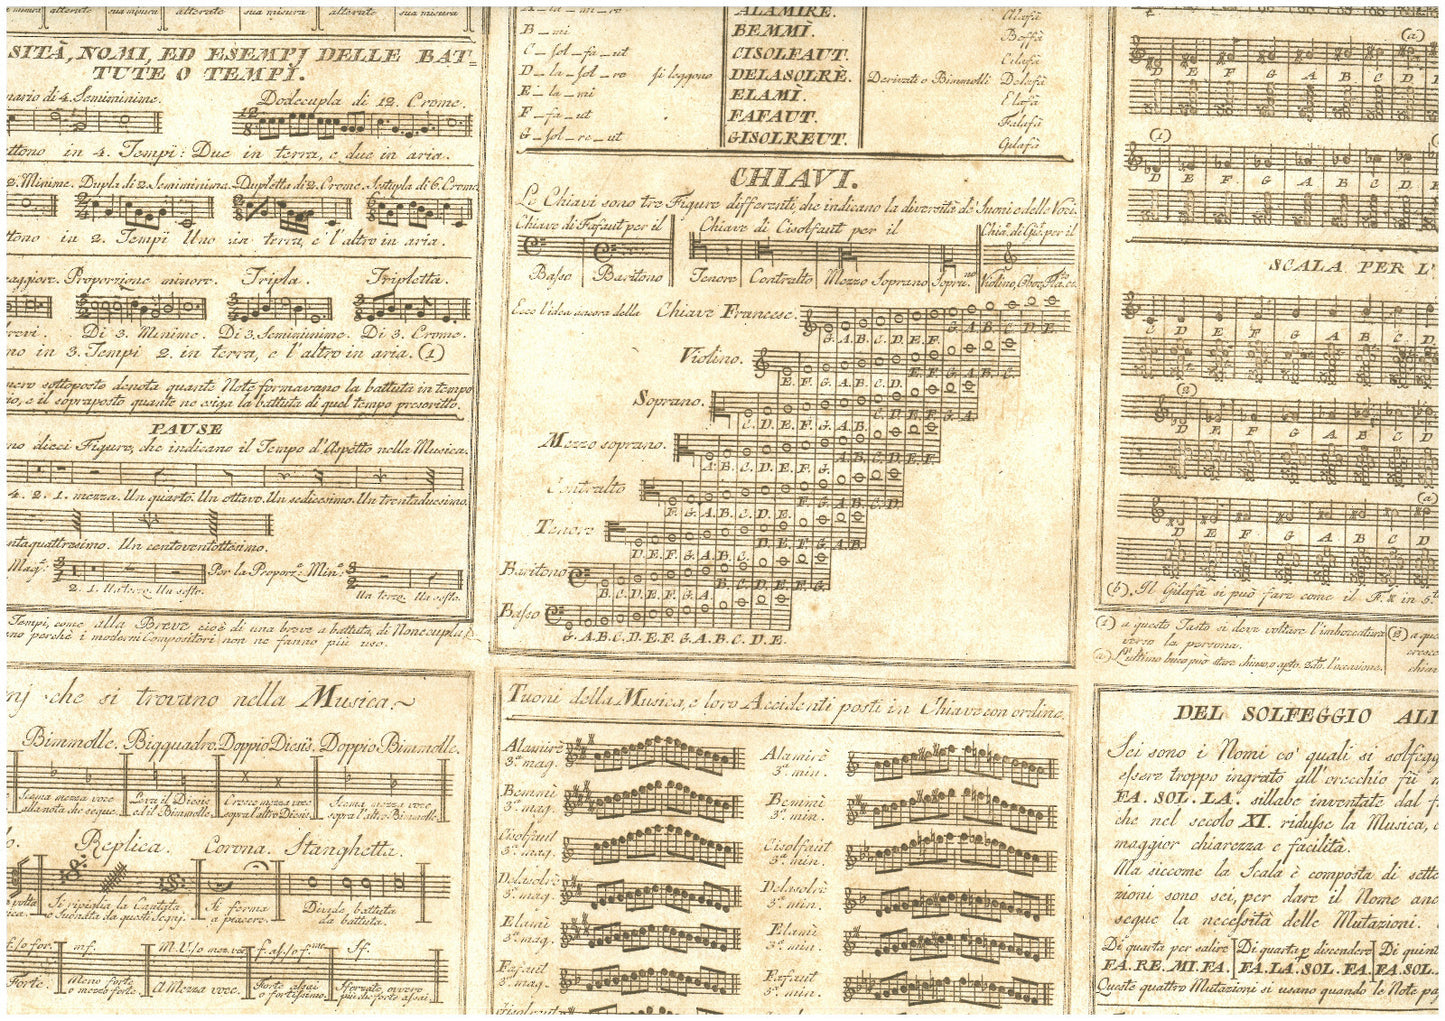 alterate sua misura alterate sua misura alterate sua misura
SITÀ, NOMI, ED ESEMPJ DELLE BAT-
TUTE O TEMPI.
nario di 4. Semiminime. Dodecupla di 12. Crome.
ttono in 4. Tempi: Due in terra, e due in aria.
2. Minime. Dupla di 2. Semiminime. Dupletta di 2. Crome. Sestupla di 6. Crome
ttono in 2. Tempi Uno in terra, e l'altro in aria.
aggiore. Proporzione minore. Tripla. Tripletta.
revi. Di 3. Minime. Di 3. Semiminime. Di 3. Crome.
no in 3. Tempi 2. in terra, e l'altro in aria. (1)
mero sottoposto denota quante Note formavano la battuta in tempo
rio, e il sopraposto quante ne esiga la battuta di quel tempo prescritto.
PAUSE
no dieci Figure, che indicano il Tempo d'Aspetto nella Musica.
4. 2. 1. mezza. Un quarto. Un ottavo. Un sedicesimo. Un trentaduesimo.
ntaquattresimo. Un centoventottesimo.
Magg.e Per la Proporz.e Min.e
2. 1. Un terzo. Un sesto. Un terzo. Un sesto.
Tempi, come alla Breve cioè di una breve a battuta, di Nonecupla,
no perchè i moderni Compositori non ne fanno più uso.
A_la_mi_re ALAMIRE. Alafà
B_mi BEMMÌ. Beffà
C_sol_fa_ut CISOLFAUT. Cilafà
D_la_sol_re si leggono DELASOLRÈ. Derivati e Bimmolli Delafà
E_la_mi ELAMÌ. Elafà
F_fa_ut FAFAUT. Falafà
G_sol_re_ut GISOLREUT. Gilafà
CHIAVI.
Le Chiavi sono tre Figure differenti, che indicano la diversità de' suoni e delle Voci.
Chiave di Fafaut per il Chiave di Cisolfaut per il Chia.e di Gis. per il
Basso Baritono Tenore Contralto Mezzo Soprano Sopra.no Violino, Oboe, Fla.to ec.
Ecco l'idea ancora della Chiave Francese.
G. A. B. C. D. E. F. G. A. B. C. D. E.
Violino.
E. F. G. A. B. C. D. E. F. G. A. B. C.
Soprano.
C. D. E. F. G. A. B. C. D. E. F. G. A
Mezzo soprano.
A. B. C. D. E. F. G. A. B. C. D. E. F.
Contralto
F. G. A. B. C. D. E. F. G. A. B. C. D
Tenore
D. E. F. G. A. B. C. D. E. F. G. A. B
Baritono
B. C. D. E. F. G. A B. C. D. E. F. G.
Basso
G. A. B. C. D. E. F. G. A. B. C. D. E.
(a)
D E F G A B C D
(1)
D E F G A B C D
SCALA PER L'
C D E F G A B C D
(2)
D E F G A B C D
(a)
D E F G A B C D
(b). Il Gilafà si può fare come il F.
(1) a questo Tasto si deve voltare l'imboccatura
verso la persona.
(a) L'ultimo buco può stare chiuso, o apto. sdo. l'occasione.
nj che si trovano nella Musica.
Bimmolle. Biqquadro. Doppio Diesis. Doppio Bimmolle.
Scema mezza voce
alla nota che segue.
Leva il Diesis
ed il Bimmolle
Cresce mezza voce
sopra l'altro Diesis.
Scema mezza voce
sopra l'altro Bimmolle.
Replica. Corona. Stanghetta.
Si ripiglia la Cantata
o Suonata da questi Segnj.
Si ferma
a piacere.
Divide battuta
da battuta.
mf.
Forte.
Meno forte
o mezzo forte.
A Mezza voce.
Forte assai
o fortissimo.
Sforzato, ovvero
più che forte assai
Tuoni della Musica, e loro Accidenti posti in Chiave con ordine.
Alamirè
3.a mag.
Alamirè
3.a min.
Bemmì
3.a mag.
Bemmì
3.a min.
Cisolfaut
3.a mag.
Cisolfaut
3.a min.
Delasolrè
3.a mag.
Delasolrè
3.a min.
Elamì
3.a mag.
Elamì
3.a min.
Fafaut
3.a mag.
Fafaut
3.a min.
DEL SOLFEGGIO ALL
Sei sono i Nomi co' quali si solfegg
essere troppo ingrato all'orecchio fù
FA. SOL. LA. sillabe inventate dal
che nel secolo XI. ridusse la Musica,
maggior chiarezza e facilità.
Ma siccome la Scala è composta di sette
zioni sono sei, per dare il Nome anc
segue la necessità delle Mutazioni.
Di quarta per salire Di quarta p discendere Di quint
FA. RE. MI. FA. FA. LA. SOL. FA. FA. SOL.
Queste quattro Mutazioni si usano quando le Note pa